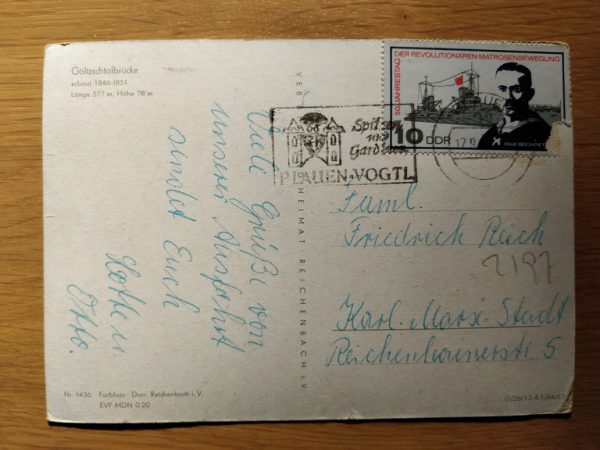 Göltzschtalbrücke
erbaut 1846-1851
Länge 577 m, Höhe 78 m
Viele Grüße von
unserer Ausfahrt
sendet Euch
Lotte u
Otto.
Nr. 1436 Farbfoto: Darr, Reichenbach i. V.
EVP MDN 0,20
VEB HEIMAT REICHENBACH i. V.
50. JAHRESTAG DER REVOLUTIONÄREN MATROSENBEWEGUNG
10 DDR
MAX REICHPIET
Spitzen
und
Gardinen
PLAUEN-VOGTL
17.9
Faml.
Friedrich Reich
2197
Karl-Marx-Stadt
Reichenhainerstr 5